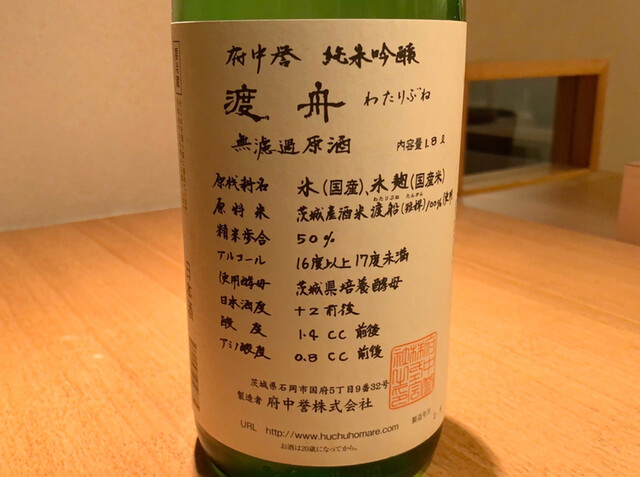 府中誉 純米吟醸
渡舟 わたりぶね
無濾過原酒 内容量1.8ℓ
原材料名 米(国産)、米麹(国産米)
わたりぶね たんかん
原料米 茨城産酒米 渡船(短稈)100%使用
精米歩合 50%
アルコール 16度以上17度未満
使用酵母 茨城県培養酵母
日本酒度 +2前後
酸度 1.4CC前後
アミノ酸度 0.8CC前後
茨城県石岡市国府5丁目9番32号
製造者 府中誉株式会社
製造年月
URL http://www.huchuhomare.com
お酒は20歳になってから。
日本酒